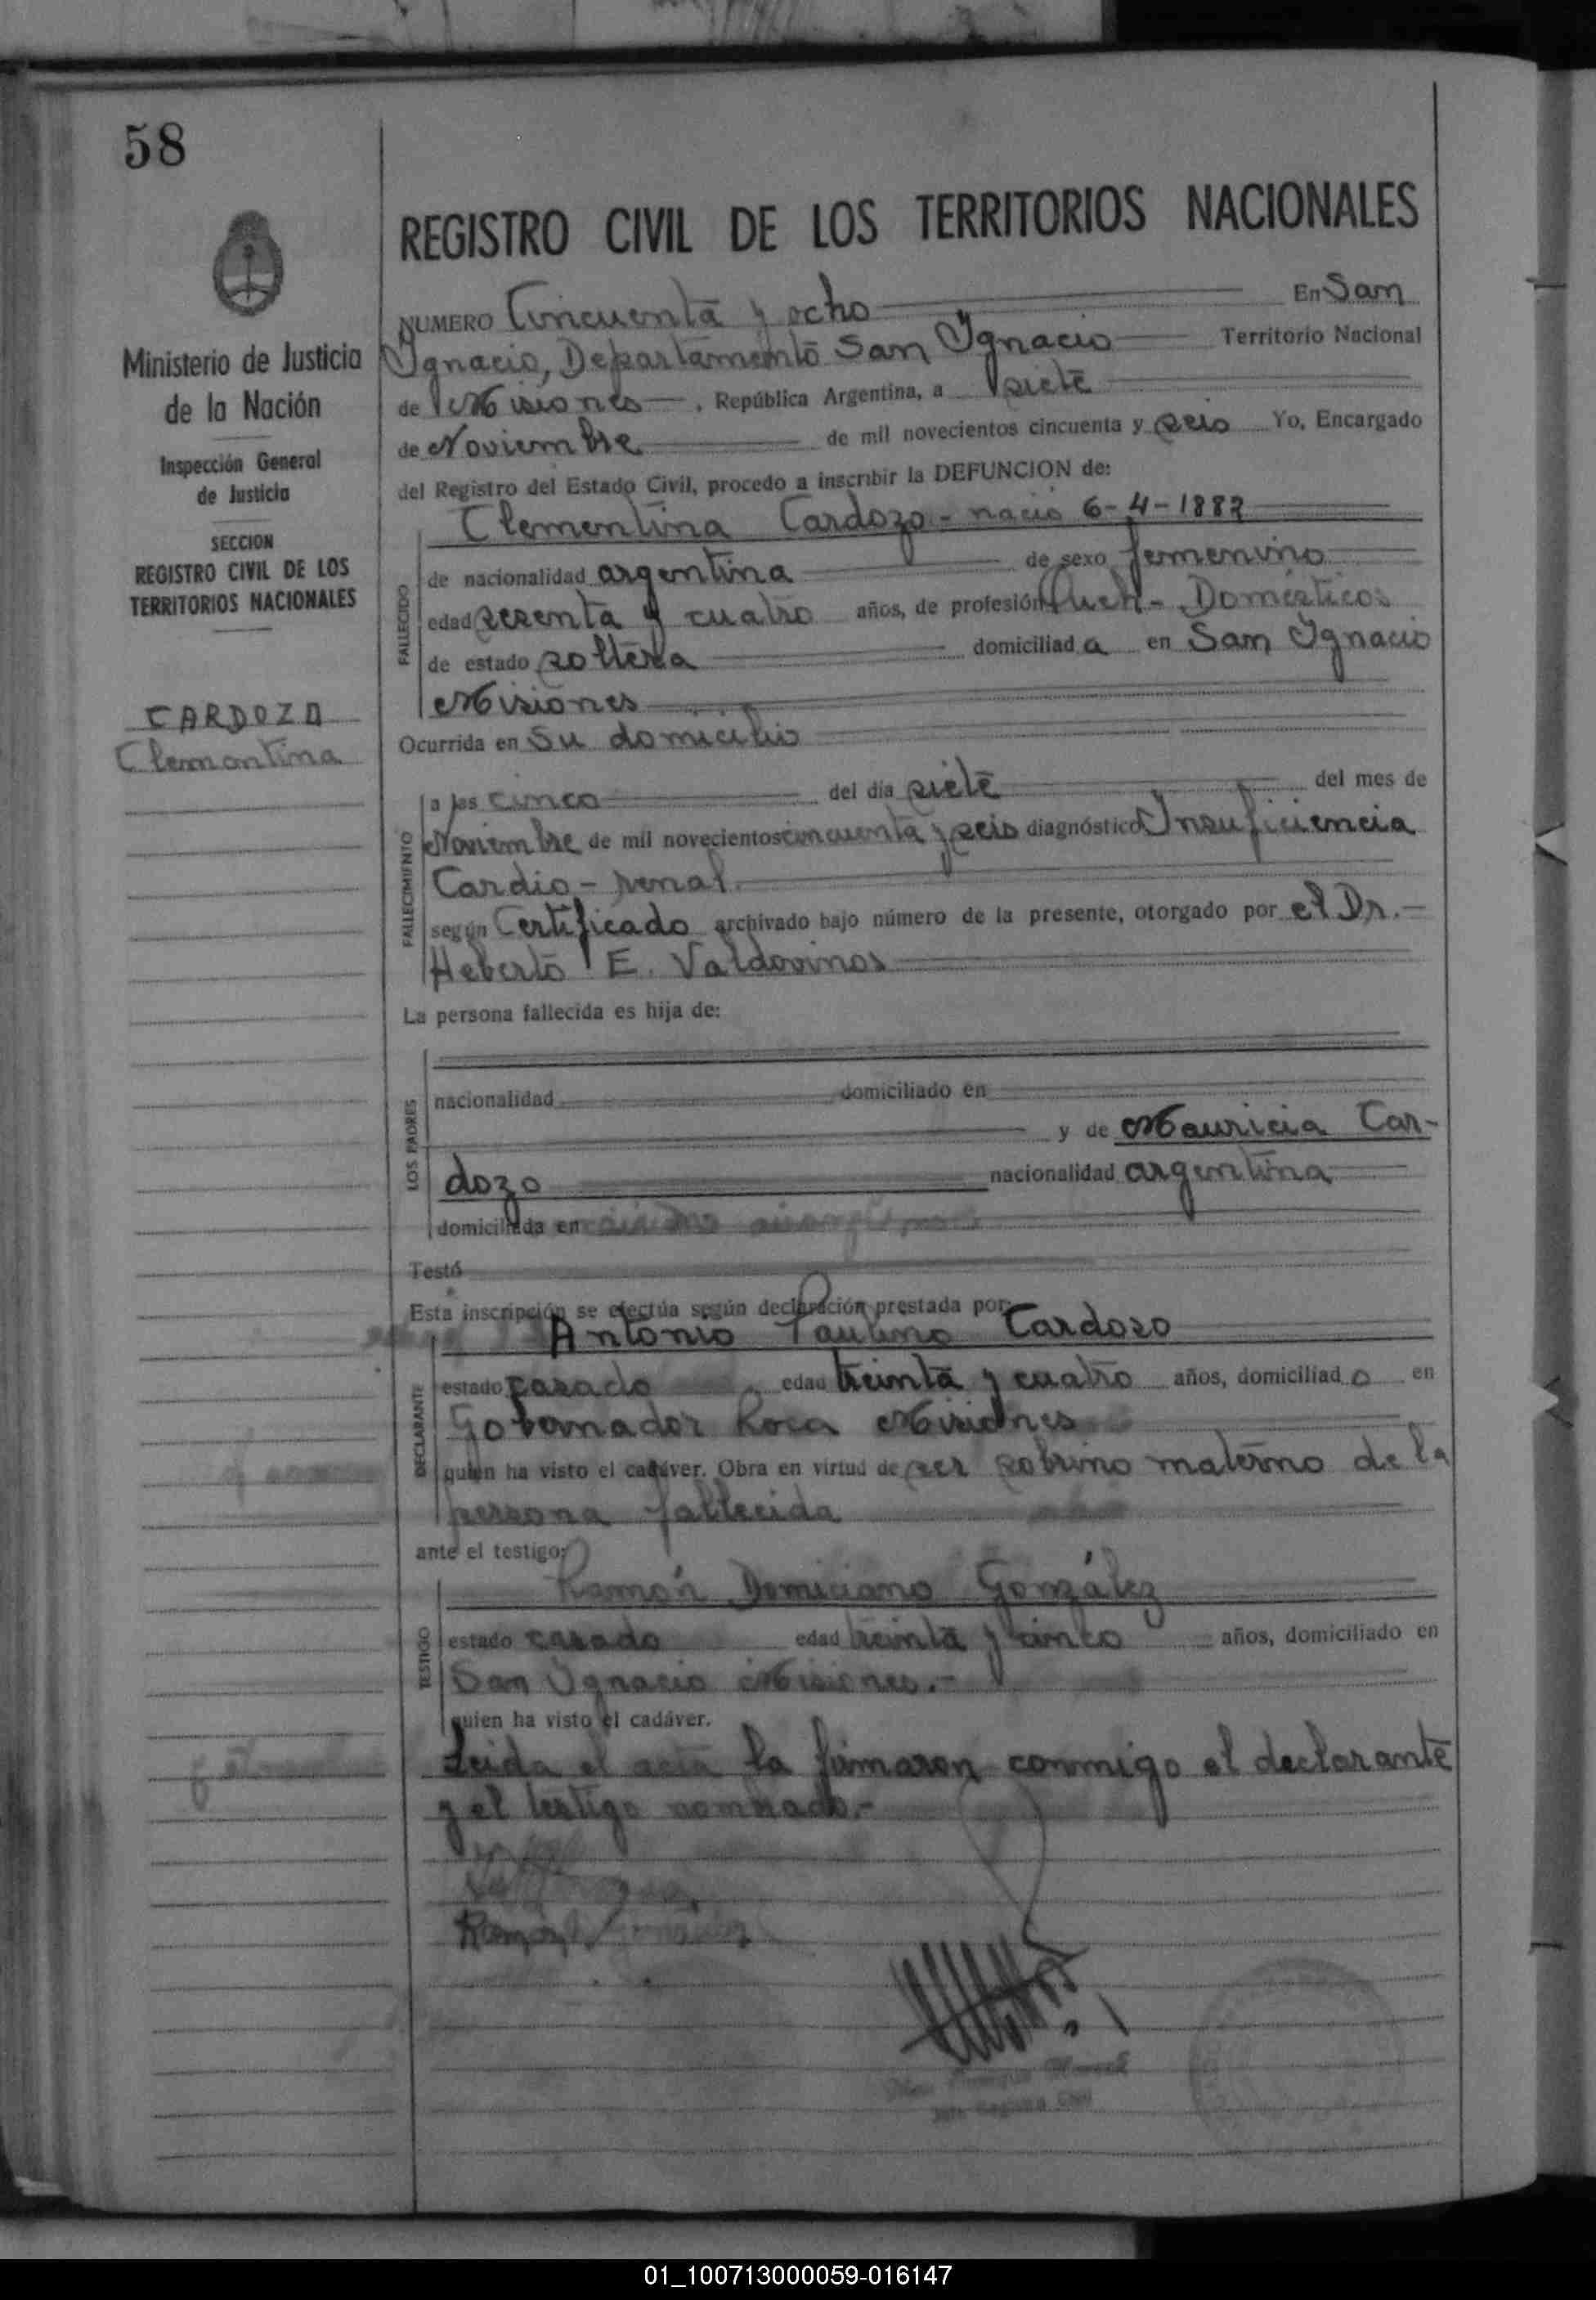 58
REGISTRO CIVIL DE LOS TERRITORIOS NACIONALES
Ministerio de Justicia
de la Nación
Inspección General
de Justicia
SECCION
REGISTRO CIVIL DE LOS
TERRITORIOS NACIONALES
CARDOZO
Clementina
NUMERO Cincuenta y ocho En San
Ignacio, Departamento San Ignacio Territorio Nacional
de Misiones, República Argentina, a siete
de Noviembre de mil novecientos cincuenta y seis Yo, Encargado
del Registro del Estado Civil, procedo a inscribir la DEFUNCION de:
FALLECIDO
Clementina Cardozo.- nació 6-4-1882
de nacionalidad argentina de sexo femenino
edad sesenta y cuatro años, de profesión Queh- Domésticos
de estado soltera domiciliada en San Ignacio
Misiones
Ocurrida en su domicilio
FALLECIMIENTO
a las cinco del día siete del mes de
Noviembre de mil novecientos cincuenta y seis diagnóstico Insuficiencia
Cardio-renal.
según Certificado archivado bajo número de la presente, otorgado por el Dr.-
Heberto E. Valdovinos
La persona fallecida es hija de:
LOS PADRES
nacionalidad domiciliado en
y de Mauricia Car-
dozo nacionalidad argentina
domiciliada en
Testó
Esta inscripción se efectúa según declaración prestada por:
DECLARANTE
Antonio Paulino Cardozo
estado casado edad treinta y cuatro años, domiciliado en
Gobernador Roca Misiones
quien ha visto el cadáver. Obra en virtud de ser sobrino materno de la
persona fallecida
ante el testigo:
TESTIGO
Ramón Domiciano González
estado casado edad treinta y cinco años, domiciliado en
San Ignacio Misiones.-
quien ha visto el cadáver.
Leida el acta la firmaron conmigo el declarante
y el testigo nombrado.-
01_100713000059-016147